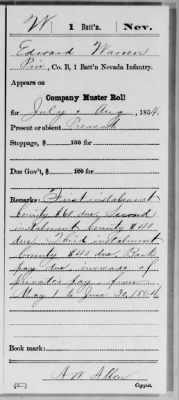 W 1 Batt'n. Nev.
Edward Warren
Priv, Co. B, 1 Batt'n Nevada Infantry.
Appears on
Company Muster Roll
for July & Aug, 1864.
Present or absent Present
Stoppage, $ 100 for
Due Gov't, $ 100 for
Remarks: First instalment
bounty $60 due, Second
instalment bounty $40
due. Third instalment
bounty $40 due. Back
pay due increase of
pay from
May 1 to June 30, 1864
Book mark:
A W Allen
Copyist.